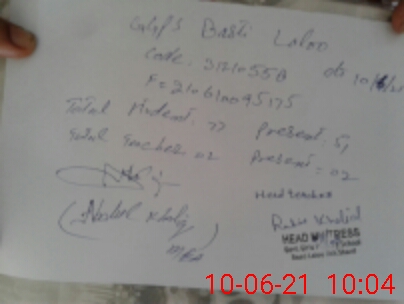 GGPS Basti Laloo
Code: 31210558 dt 10/6/21
F = 210610095175
Total Student: 77 Present: 51
Total Teacher: 02 Present: 02
Headteacher
Rabia Khalid
HEAD MISTRESS
Govt. Girls School
Basti Laloo
10-06-21 10:04